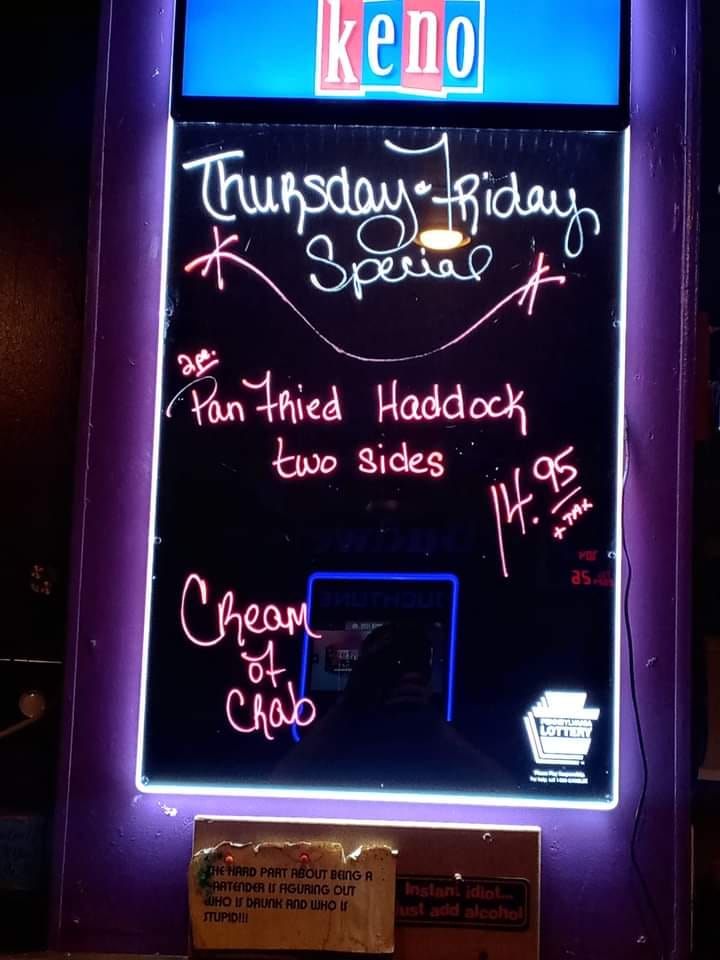 keno
Thursday & Friday
Special
2 pc.
Pan Fried Haddock
two sides
14.95
+ TAX
Cream
of
Crab
PENNSYLVANIA
LOTTERY
Please Play Responsibly.
THE HARD PART ABOUT BEING A
BARTENDER IS FIGURING OUT
WHO IS DRUNK AND WHO IS
STUPID!!!
Instant idiot...
Just add alcohol